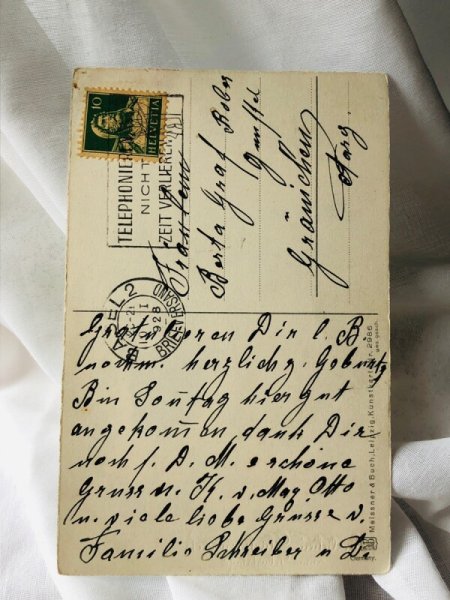 10
HELVETIA
TELEPHONIEREN
NICHT
ZEIT VERLIEREN
BASEL 2
BRIEFVERSAND
Fräulein
Berta Graf
Gränichen
Aarg.
Gratulieren Dir l. B.
nochm. herzlich z. Geburtz
Bin Soñtag hier gut
angekommen dank Dir
noch f. D. M. e schöne
Gruss v. H. v. May. Otto
u. viele liebe Grüsse v.
Familie Schreiber u D.
Meissner & Buch, Leipzig, Kunstkarten Nr. 2985
Germany.